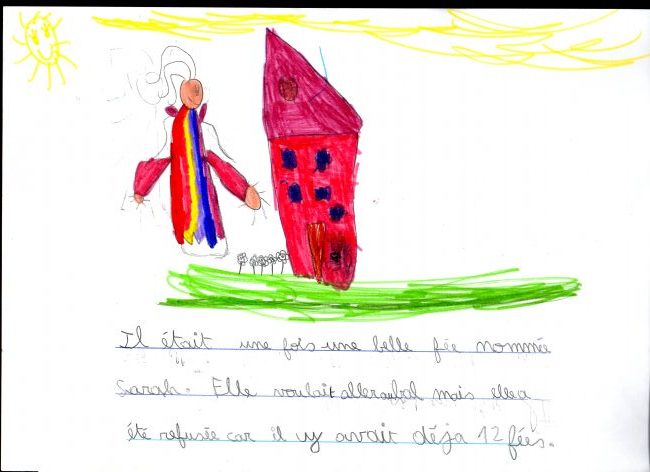 Il était une fois une belle fée nommée
Sarah. Elle voulait aller au bal mais elle a
été refusée car il y avait déja 12 fées.